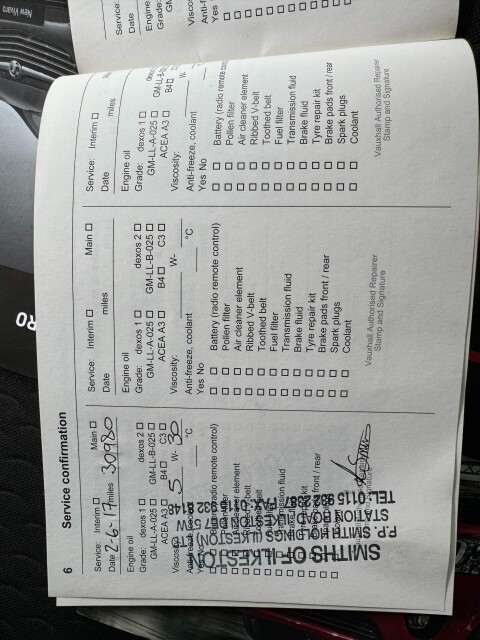 6
Service confirmation
Service: Interim □ Main □
Date 2-6-17 miles 30980
Engine oil
Grade: dexos 1 □ dexos 2 □
GM-LL-A-025 □ GM-LL-B-025 □
ACEA A3 □ B4 □ C3 □
Viscosity: 5 W- 30
Yes No
Battery (radio remote control)
SMITHS OF ILKESTON
STATION ROAD
TEL: 0115 932
Service: Interim □ Main □
Date miles
Engine oil
Grade: dexos 1 □ dexos 2 □
GM-LL-A-025 □ GM-LL-B-025 □
ACEA A3 □ B4 □ C3 □
Viscosity: W-
Anti-freeze, coolant °C
Yes No
□ □ Battery (radio remote control)
□ □ Pollen filter
□ □ Air cleaner element
□ □ Ribbed V-belt
□ □ Toothed belt
□ □ Fuel filter
□ □ Transmission fluid
□ □ Brake fluid
□ □ Tyre repair kit
□ □ Brake pads front / rear
□ □ Spark plugs
□ □ Coolant
Vauxhall Authorised Repairer
Stamp and Signature
Service: Interim □
Date miles
Engine oil
Grade: dexos 1 □
GM-LL-A-025 □
ACEA A3 □ B4 □
Viscosity: W-
Anti-freeze, coolant
Yes No
□ □ Battery (radio remote
□ □ Pollen filter
□ □ Air cleaner element
□ □ Ribbed V-belt
□ □ Toothed belt
□ □ Fuel filter
□ □ Transmission fluid
□ □ Brake fluid
□ □ Tyre repair kit
□ □ Brake pads front / rear
□ □ Spark plugs
□ □ Coolant
Vauxhall Authorised Repairer
Stamp and Signature
Service:
Date
Engine
Grade:
Yes
New Vivaro